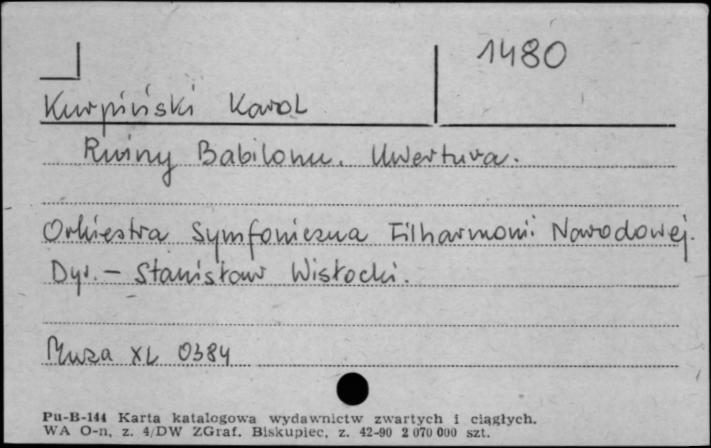 1480
Kurpiński Karol
Ruiny Babilonu. Uwertura.
Orkiestra Symfoniczna Filharmonii Narodowej.
Dyr. – Stanisław Wisłocki.
Muza XL 0384
Pu-B-144 Karta katalogowa wydawnictw zwartych i ciągłych.
WA O-n, z. 4/DW ZGraf. Biskupiec, z. 42-90 2 070 000 szt.